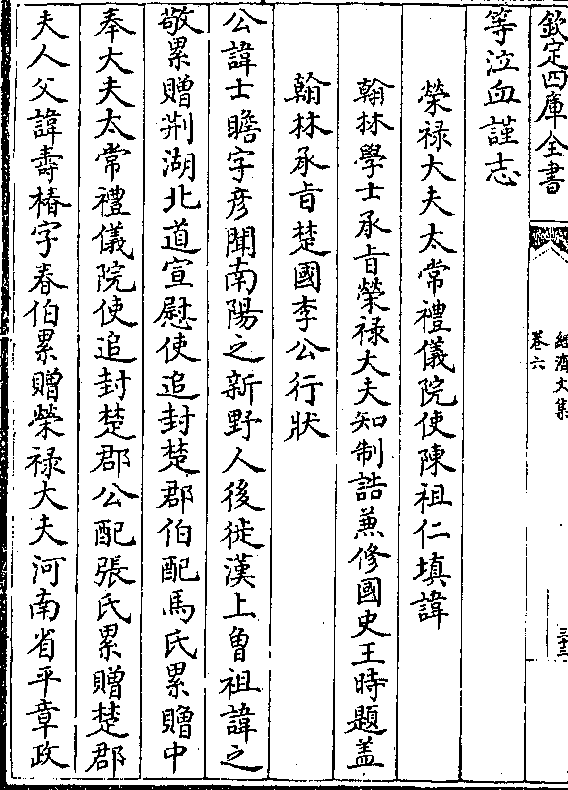 欽定四庫全書
經濟文集
卷六
三十三
等泣血謹志
榮禄大夫太常禮儀院使陳祖仁填諱
翰林學士承旨榮禄大夫知制誥兼修國史王時題盖
翰林承旨楚國李公行狀
公諱士瞻字彦聞南陽之新野人後徙漢上曾祖諱之
敬累贈荆湖北道宣慰使追封楚郡伯配馬氏累贈中
奉大夫太常禮儀院使追封楚郡公配張氏累贈楚郡
夫人父諱壽椿字春伯累贈榮禄大夫河南省平章政